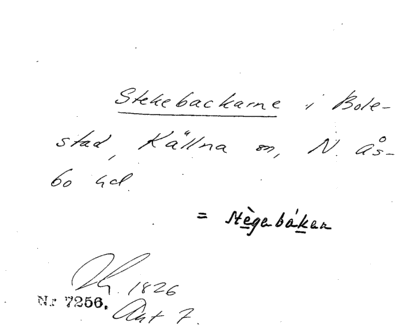 Stekebackarne i Bole-
stad, Källna sn, N. Ås-
bo hd.
= stègabákan
1826
Nr 7256. Akt 7.